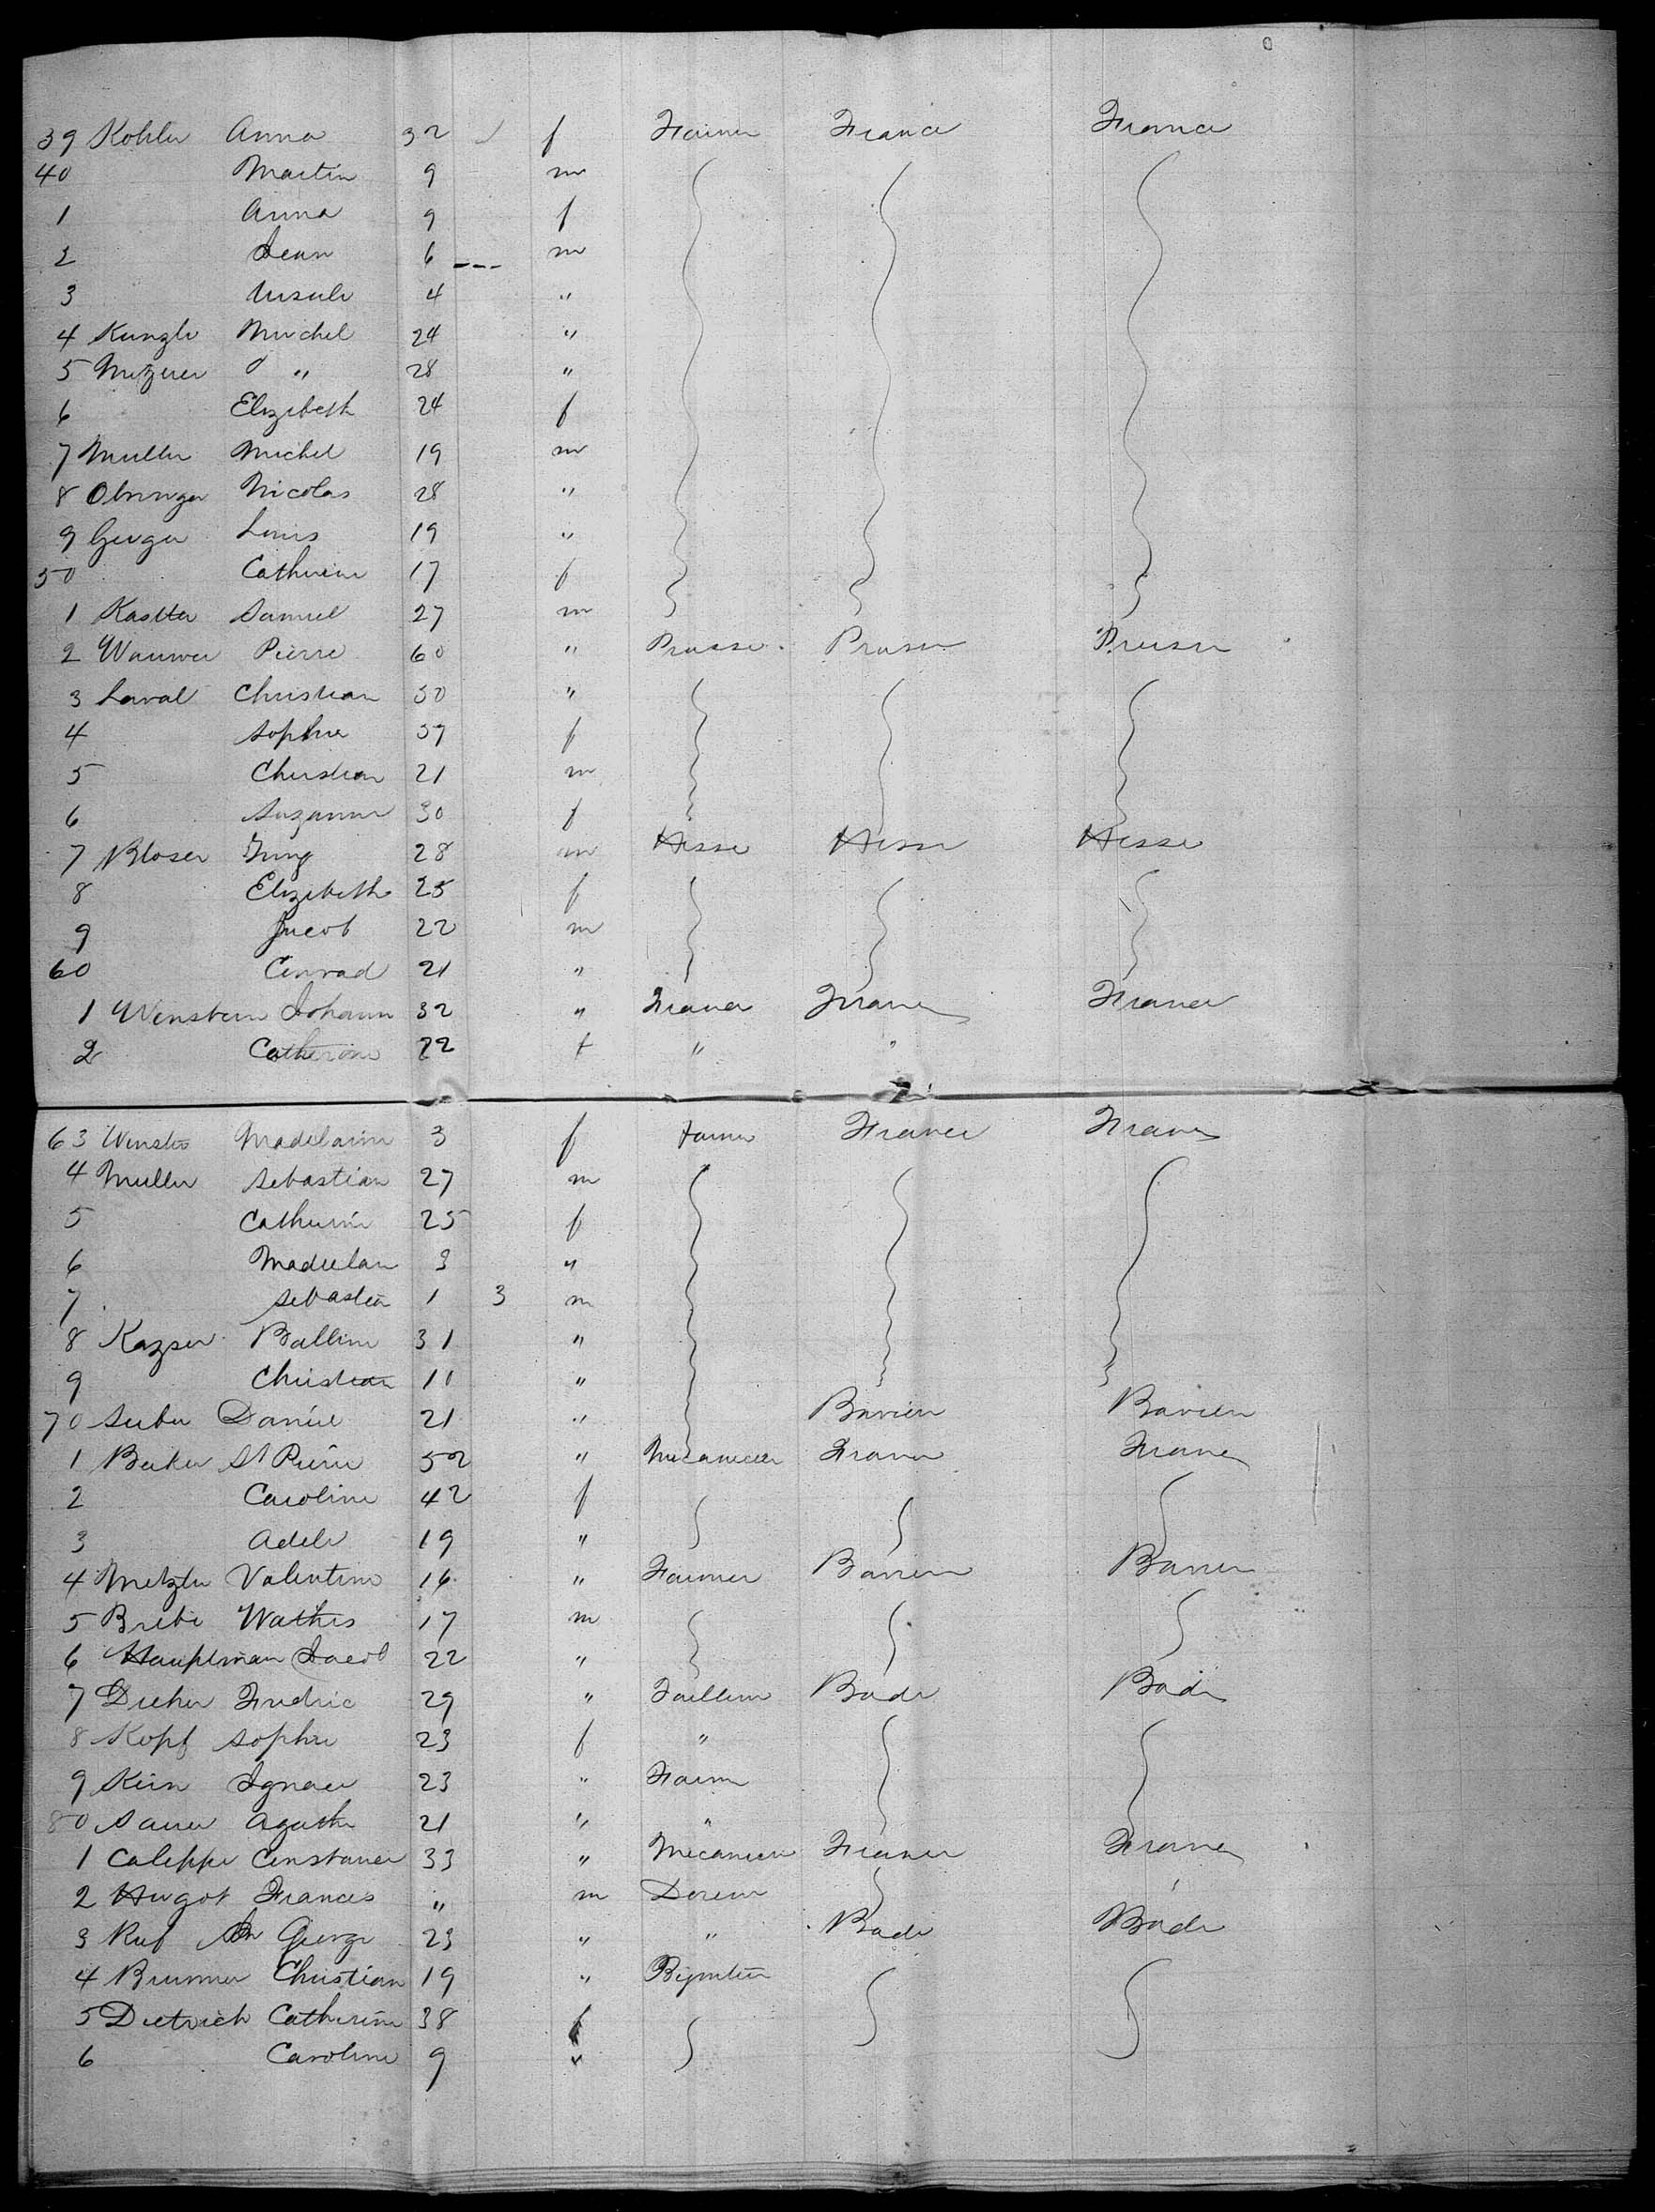 39 Kohler Anna 32 f Farmer France France
40 Martin 9 m
1 Anna 9 f
2 Jean 6 --- m
3 Ursule 4 "
4 Kunzle Michel 24 "
5 Metzger " 28 "
6 Elizebeth 24 f
7 Muller Michel 19 m
8 Nicolas 28 "
9 Geiger Louis 19 "
50 Catherine 17 f
1 Kastter Samuel 27 m
2 Pierre 60 " Prusse Prusse Prusse
3 Laval Christian 50 "
4 Sophie 57 f
5 Christian 21 m
6 Suzanne 30 f
7 Bloser Jung 28 m Hesse Hesse Hesse
8 Elizebeth 25 f
9 Jacob 22 m
60 Conrad 21 "
1 Winstein Johann 32 " France France France
2 Catherine 22 f " "
63 Winstein Madelaine 3 f Farmer France France
4 Muller Sebastian 27 m
5 Catherine 25 f
6 Madeelan 3 "
7 Sebastian 1 3 m
8 Kazser 31 "
9 Christian 10 "
70 Daniel 21 " Baviere Baviere
1 Beker St Pierre 52 " Mecanicien France France
2 Caroline 42 f
3 Adele 19 "
4 Metzler Valentine 16 " Farmer Baviere Baviere
5 Brebi Mathis 17 m
6 Hauptman Jacob 22 "
7 Fredric 29 " Bade Bade
8 Kopf Sophie 23 f "
9 Kein Ignace 23 " Farmer
80 Sauer Agathe 21 " "
1 Caleppe Constance 33 " Mecanicien France France
2 Hugot Frances " m Doreur
3 Ruf George 23 " " Bade Bade
4 Brunner Christian 19 "
5 Dietrich Catherine 38 f
6 Caroline 9 "